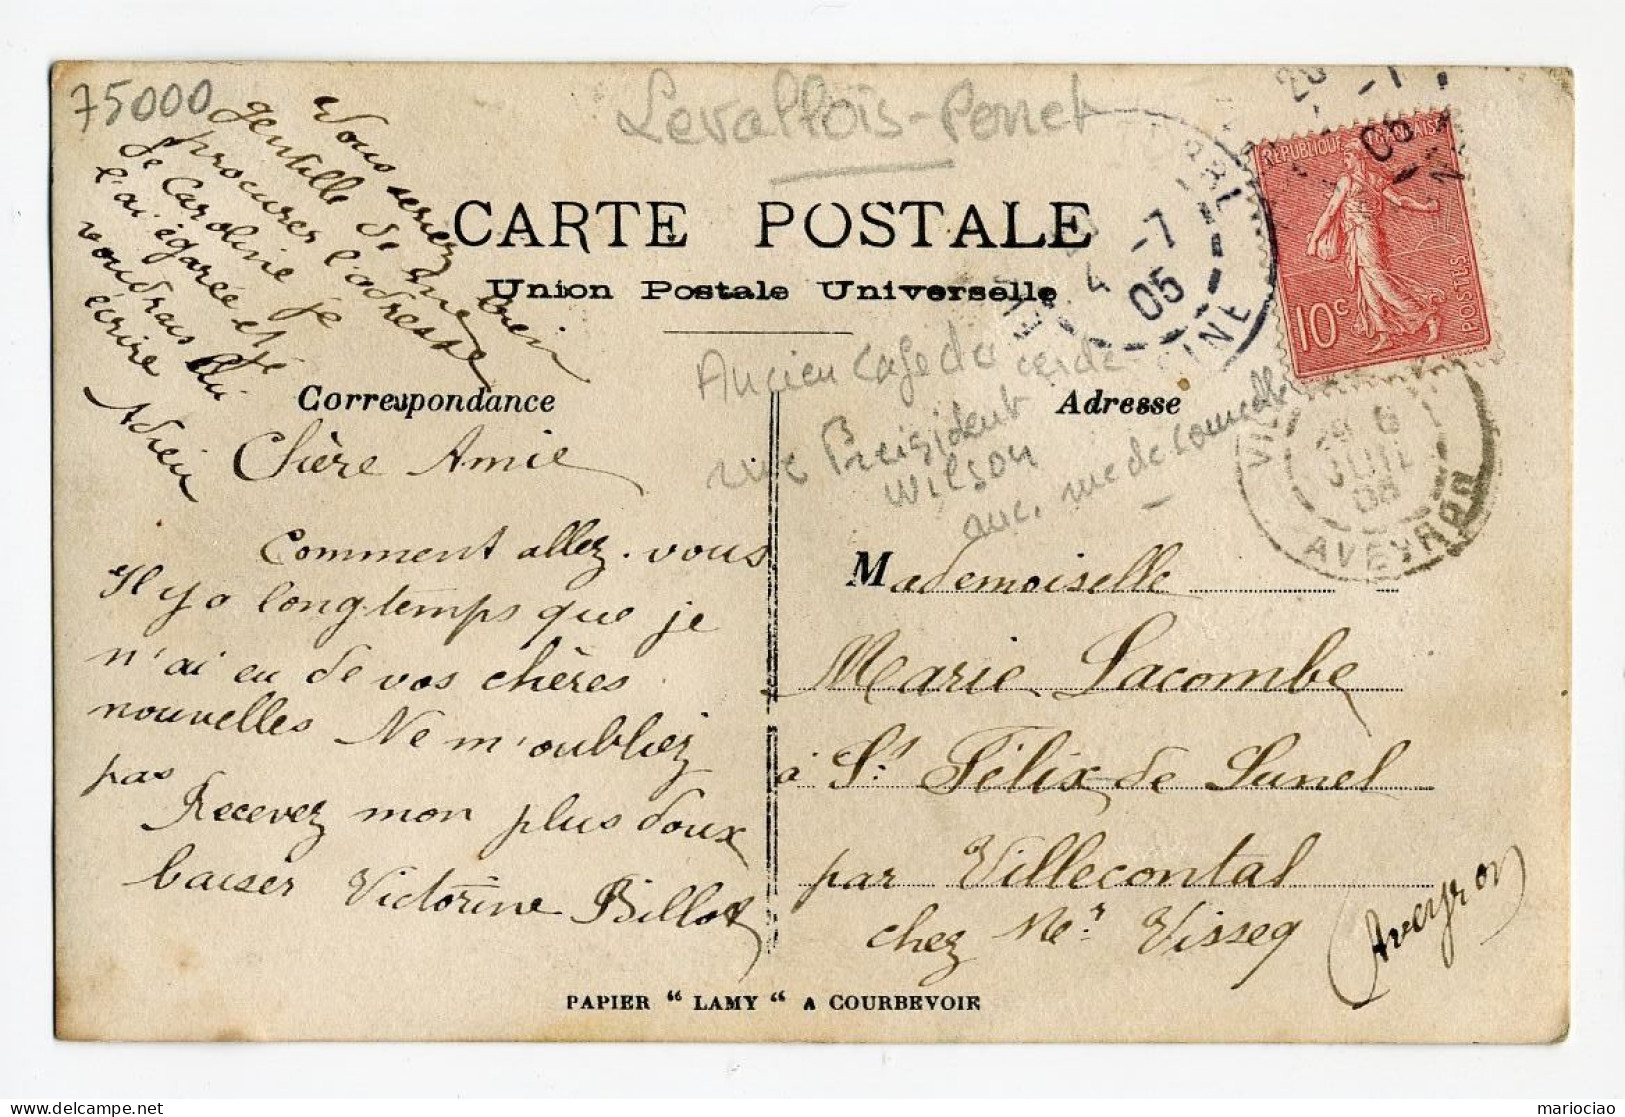 75000
Levallois-Perret
Vous seriez bien
gentille de me
procurer l'adresse
de Caroline je
l'ai égarée et je
voudrais lui
écrire
Adieu
CARTE POSTALE
Union Postale Universelle
RÉPUBLIQUE FRANÇAISE
10c
POSTES
4 -7
05
Ancien Café du cercle
rue Président
Wilson
anc. rue de Courcelle
AVEYRON
Correspondance
Adresse
Chère Amie
Comment allez-vous
Il y a longtemps que je
n'ai eu de vos chères
nouvelles Ne m'oubliez
pas
Recevez mon plus doux
baiser Victorine Billot
Mademoiselle
Marie Lacombe
à St. Félix de Lunel
par Villecontal
chez Mr. Visseq
(Aveyron)
PAPIER “ LAMY “ A COURBEVOIE
mariociao